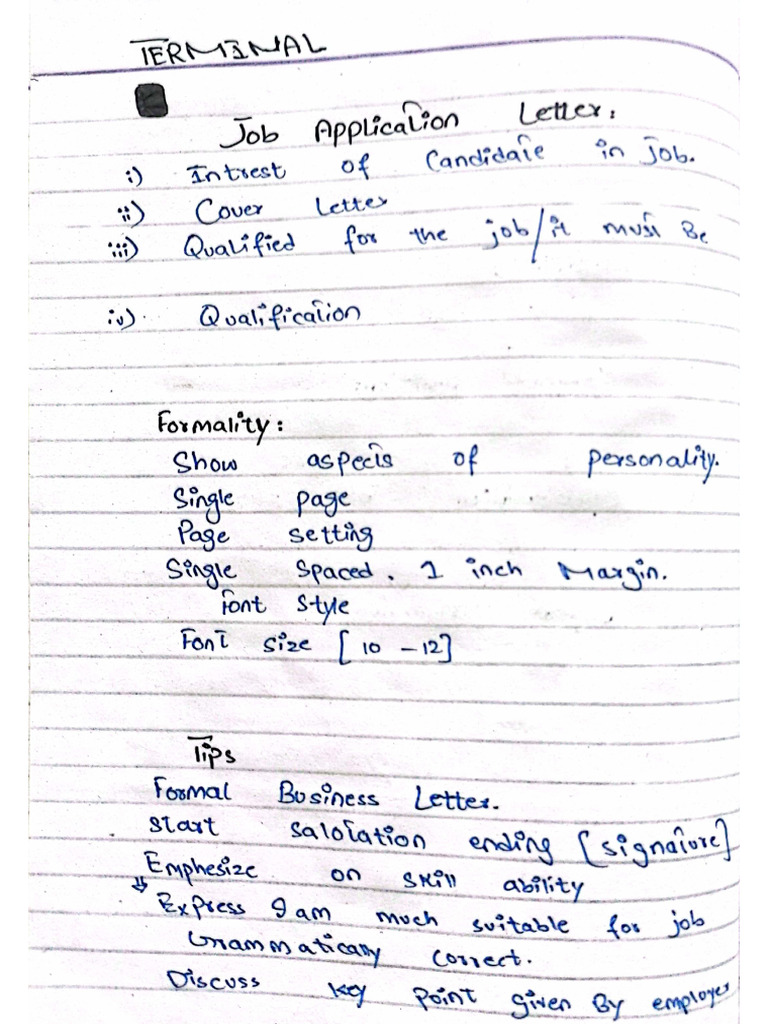 TERMINAL
Job Application Letter:
i) Intrest of Candidate in Job.
ii) Cover Letter
iii) Qualified for the job/it must Be
iv) Qualification
Formality:
Show aspects of personality.
Single page
Page setting
Single Spaced. 1 inch Margin.
Font Style
Font size [10 - 12]
Tips
Formal Business Letter.
Start salotation ending [signature]
Emphesize on skill ability
Express I am much suitable for job
Grammatically correct.
Discuss key point given By employer